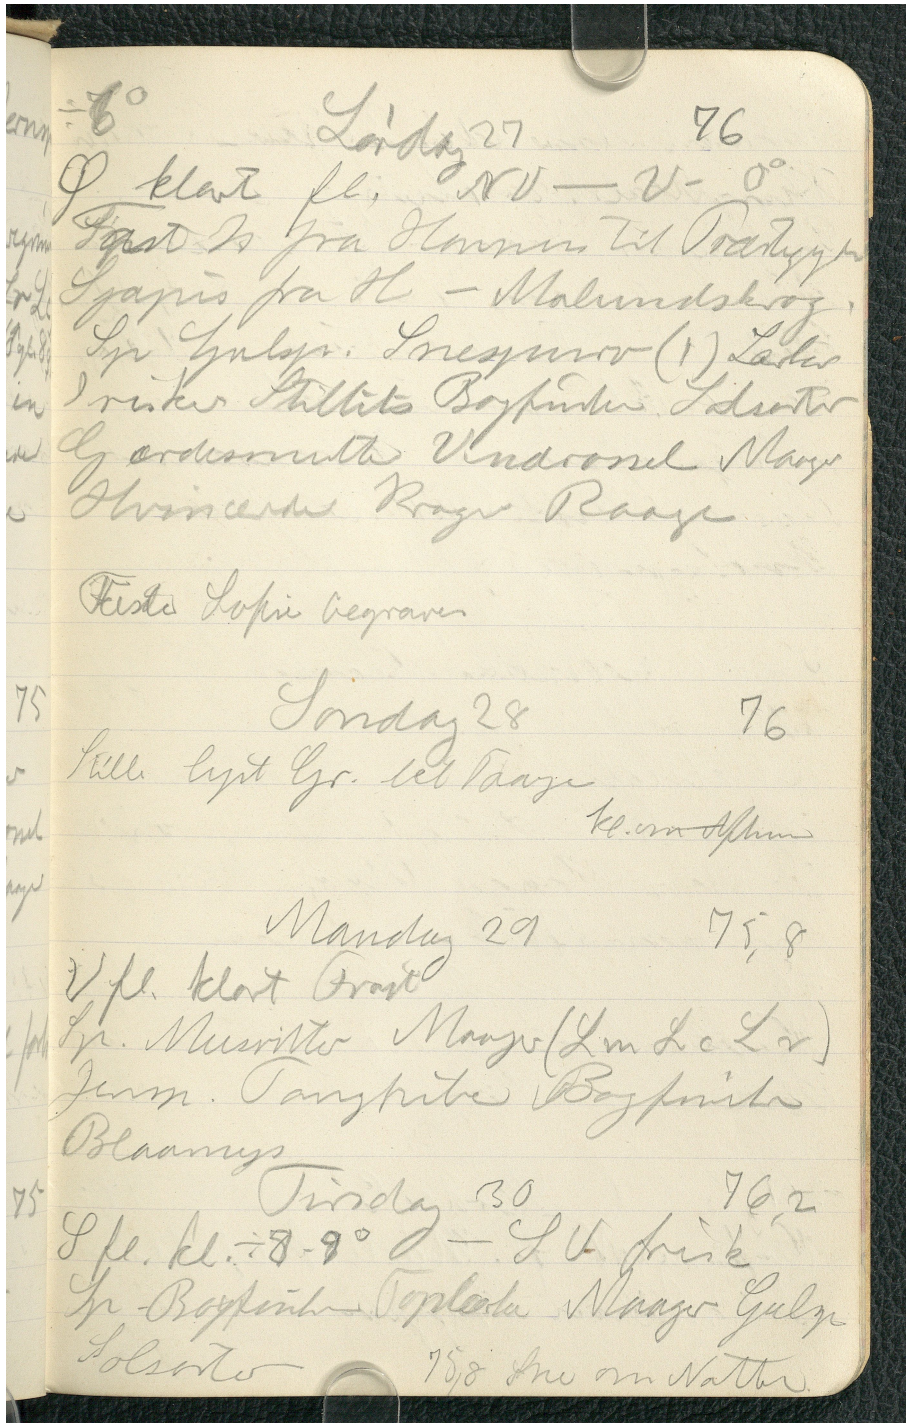 ÷6° Lørdag 27 76
Ø klart fl. NV — V - 0°
Fast Is fra Havnen til
Sjapis fra H - Malundskrog.
Sp Gulsp. Snespurv (1) Lærker
Irisker Stillits Bogfinke Solsorter
Gærdesmutte Vindrossel Maager
Krage Raage
Sofie begraves
Søndag 28 76
Stille lyst Gr. let Taage
kl. om Aftnen
Mandag 29 75,8
V fl. klart Frost
Sp. Musvitter Maager (L m L c L r)
Jernsp. Bogfinke
Blaamejs
Tirsdag 30 76,2
S fl. kl. ÷8-9° — SV frisk
Sp Bogfinke Toplærke Maager Gulsp
Solsorter 75,8 Sne om Natten.
75
75